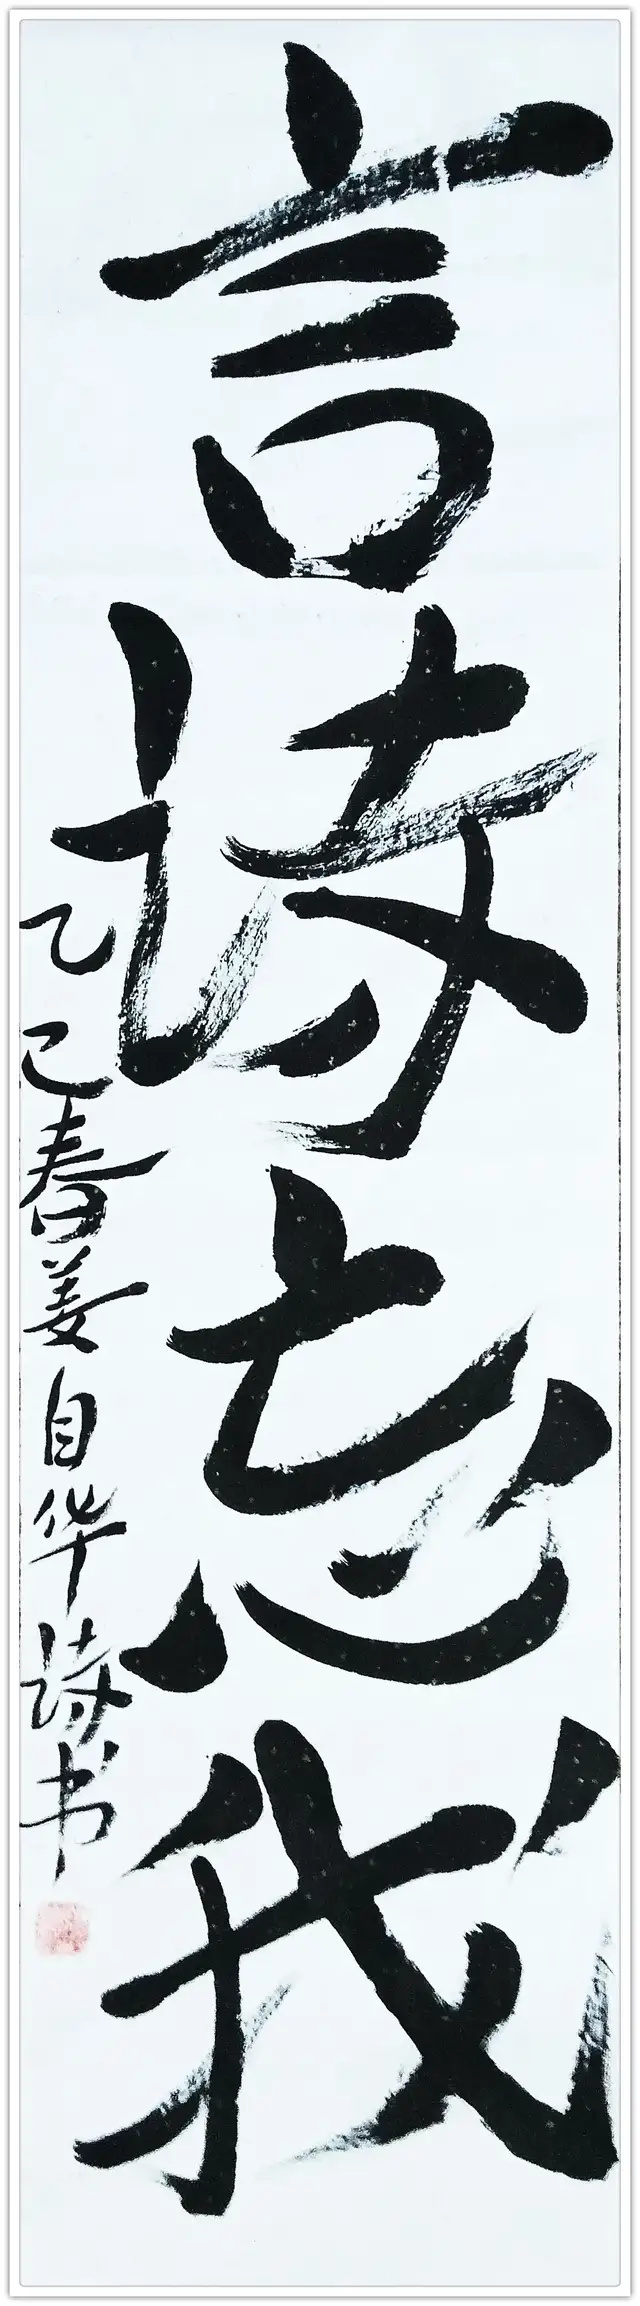 言诗忘我
乙巳春姜自华诗书